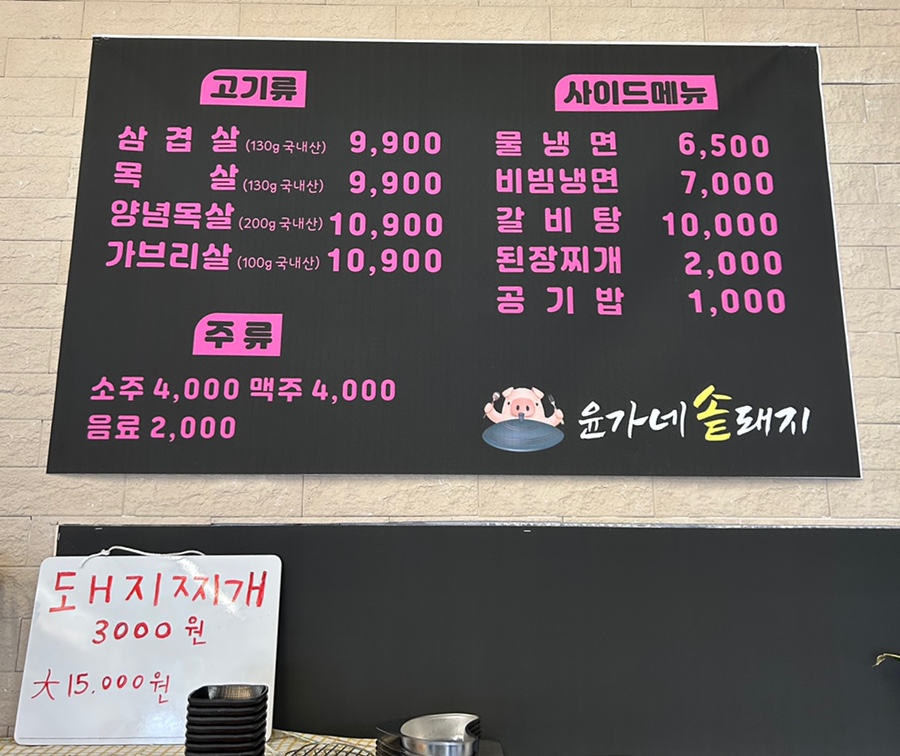 고기류
삼겹살 (130g 국내산) 9,900
목살 (130g 국내산) 9,900
양념목살 (200g 국내산) 10,900
가브리살 (100g 국내산) 10,900
주류
소주 4,000 맥주 4,000
음료 2,000
사이드메뉴
물냉면 6,500
비빔냉면 7,000
갈비탕 10,000
된장찌개 2,000
공기밥 1,000
윤가네솥돼지
돼지찌개
3000원
大 15.000원